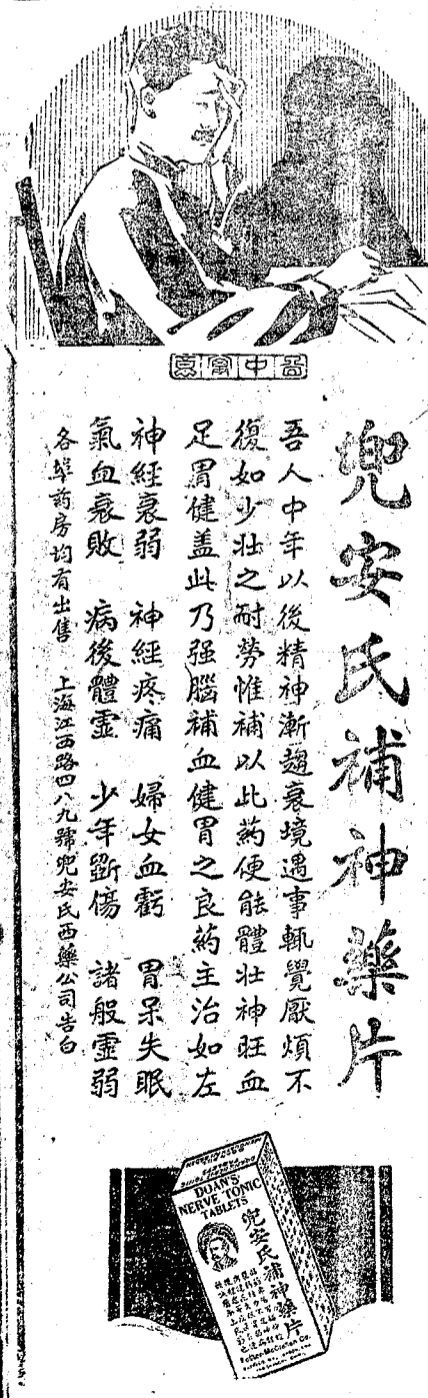 兜安氏補神藥片
吾人中年以後精神漸趨衰境遇事輒覺厭煩不
復如少壯之耐勞惟補以此葯便能體壯神旺血
足胃健盖此乃强腦補血健胃之良葯主治如左
神經衰弱 神經疼痛 婦女血虧 胃呆失眠
氣血衰敗 病後體虛 少年斵傷 諸般虛弱
各埠葯房均有出售 上海江西路四八九號兜安氏西藥公司告白
DOAN'S
NERVE TONIC
TABLETS
兜安氏補神藥片
Foster-McClellan Co.